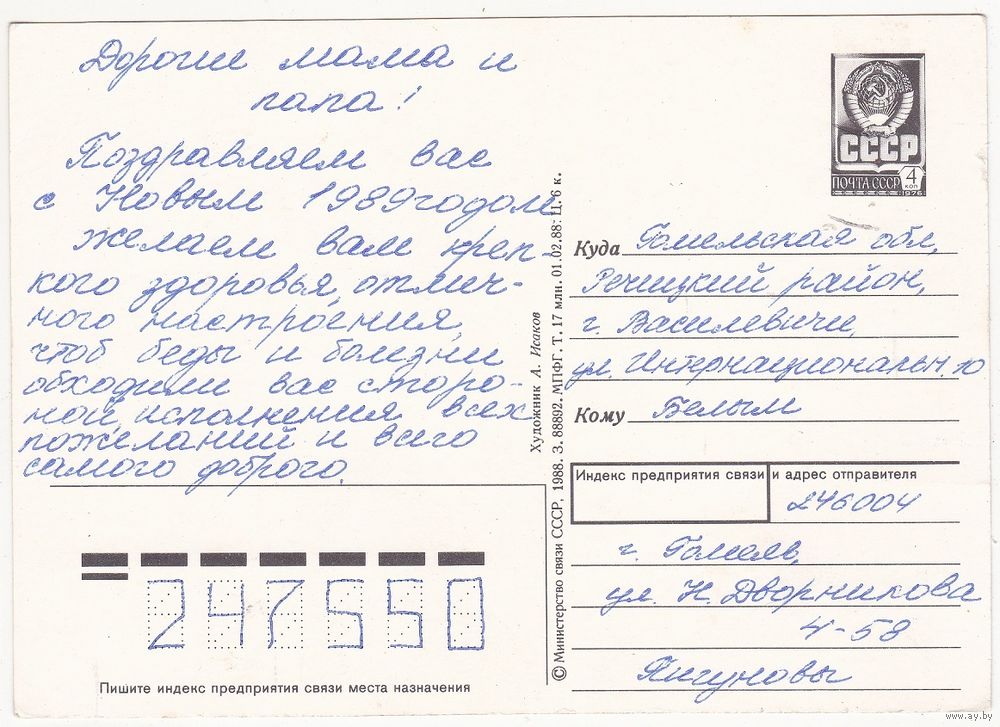 Дорогии мама и
папа!
Поздравляем вас
с Новым 1989 годом
желаем вам креп-
кого здоровья, отлич-
ного настроения,
чтоб беды и болезни
обходили вас сторо-
ной, исполнения всех
пожеланий и всего
самого доброго.
247550
Пишите индекс предприятия связи места назначения
Художник А. Исаков
© Министерство связи СССР, 1988. З. 88892. МПФГ. Т. 17 млн. 01.02.88. Ц. 6 к.
СССР
ПОЧТА СССР 4
КОП
1976
Куда Гомельская обл,
Речицкий район,
г. Василевичи,
ул. Интернациональн. 10
Кому Белым
Индекс предприятия связи и адрес отправителя
246004
г. Гомель,
ул. Н. Дворникова
4-58
Якуновы
www.ay.by